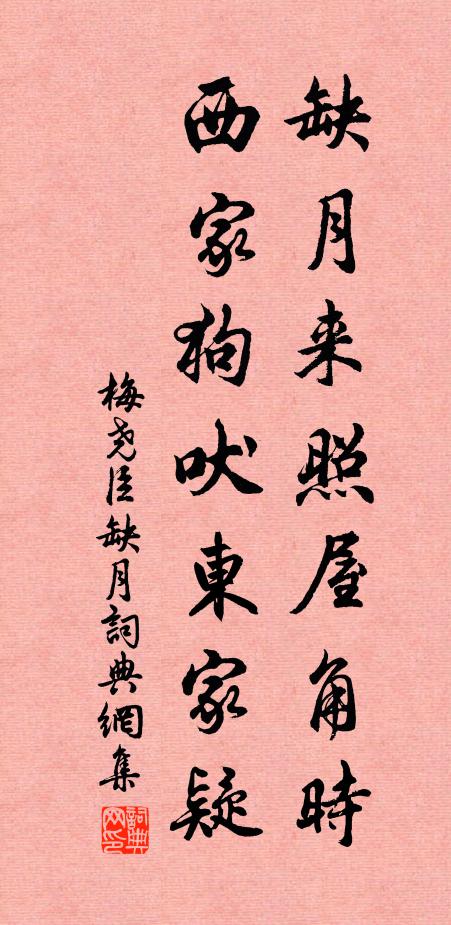 缺月来照屋角時
西家狗吠東家疑
梅尧臣缺月詞典網集
詞典网印